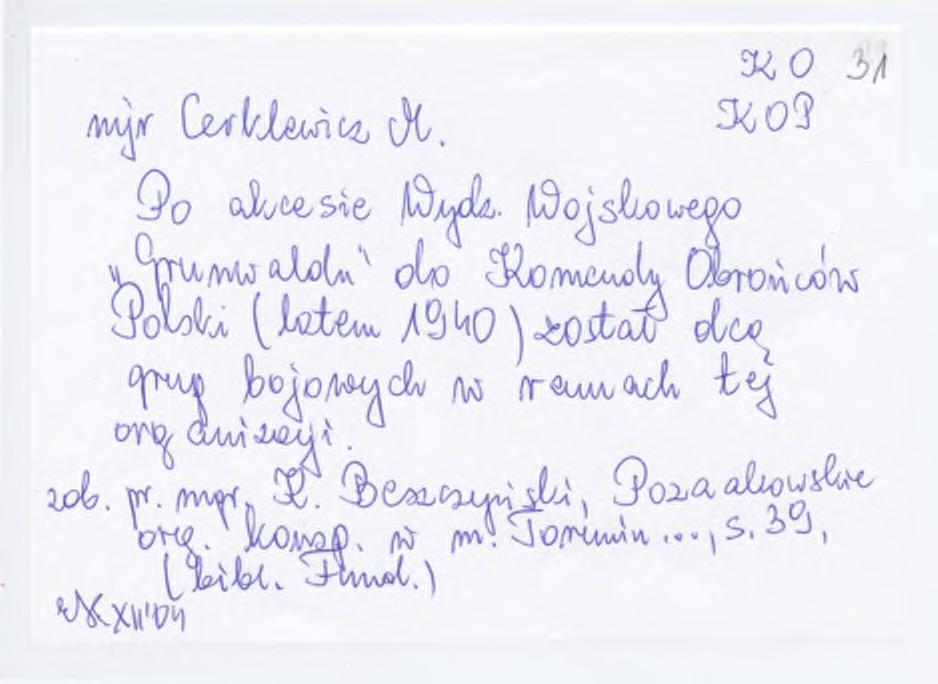 KO 31
KOP
mjr Cerklewicz M.
Po akcesie Wydz. Wojskowego
"Grunwaldu" do Komendy Obrońców
Polski (latem 1940) został dcą
grup bojowych w ramach tej
organizacji.
zob. pr. mgr. K. Beszczyński, Pozaakowskie
org. konsp. w m. Toruniu ..., s. 39,
(bibl. Fund.)
XII'04